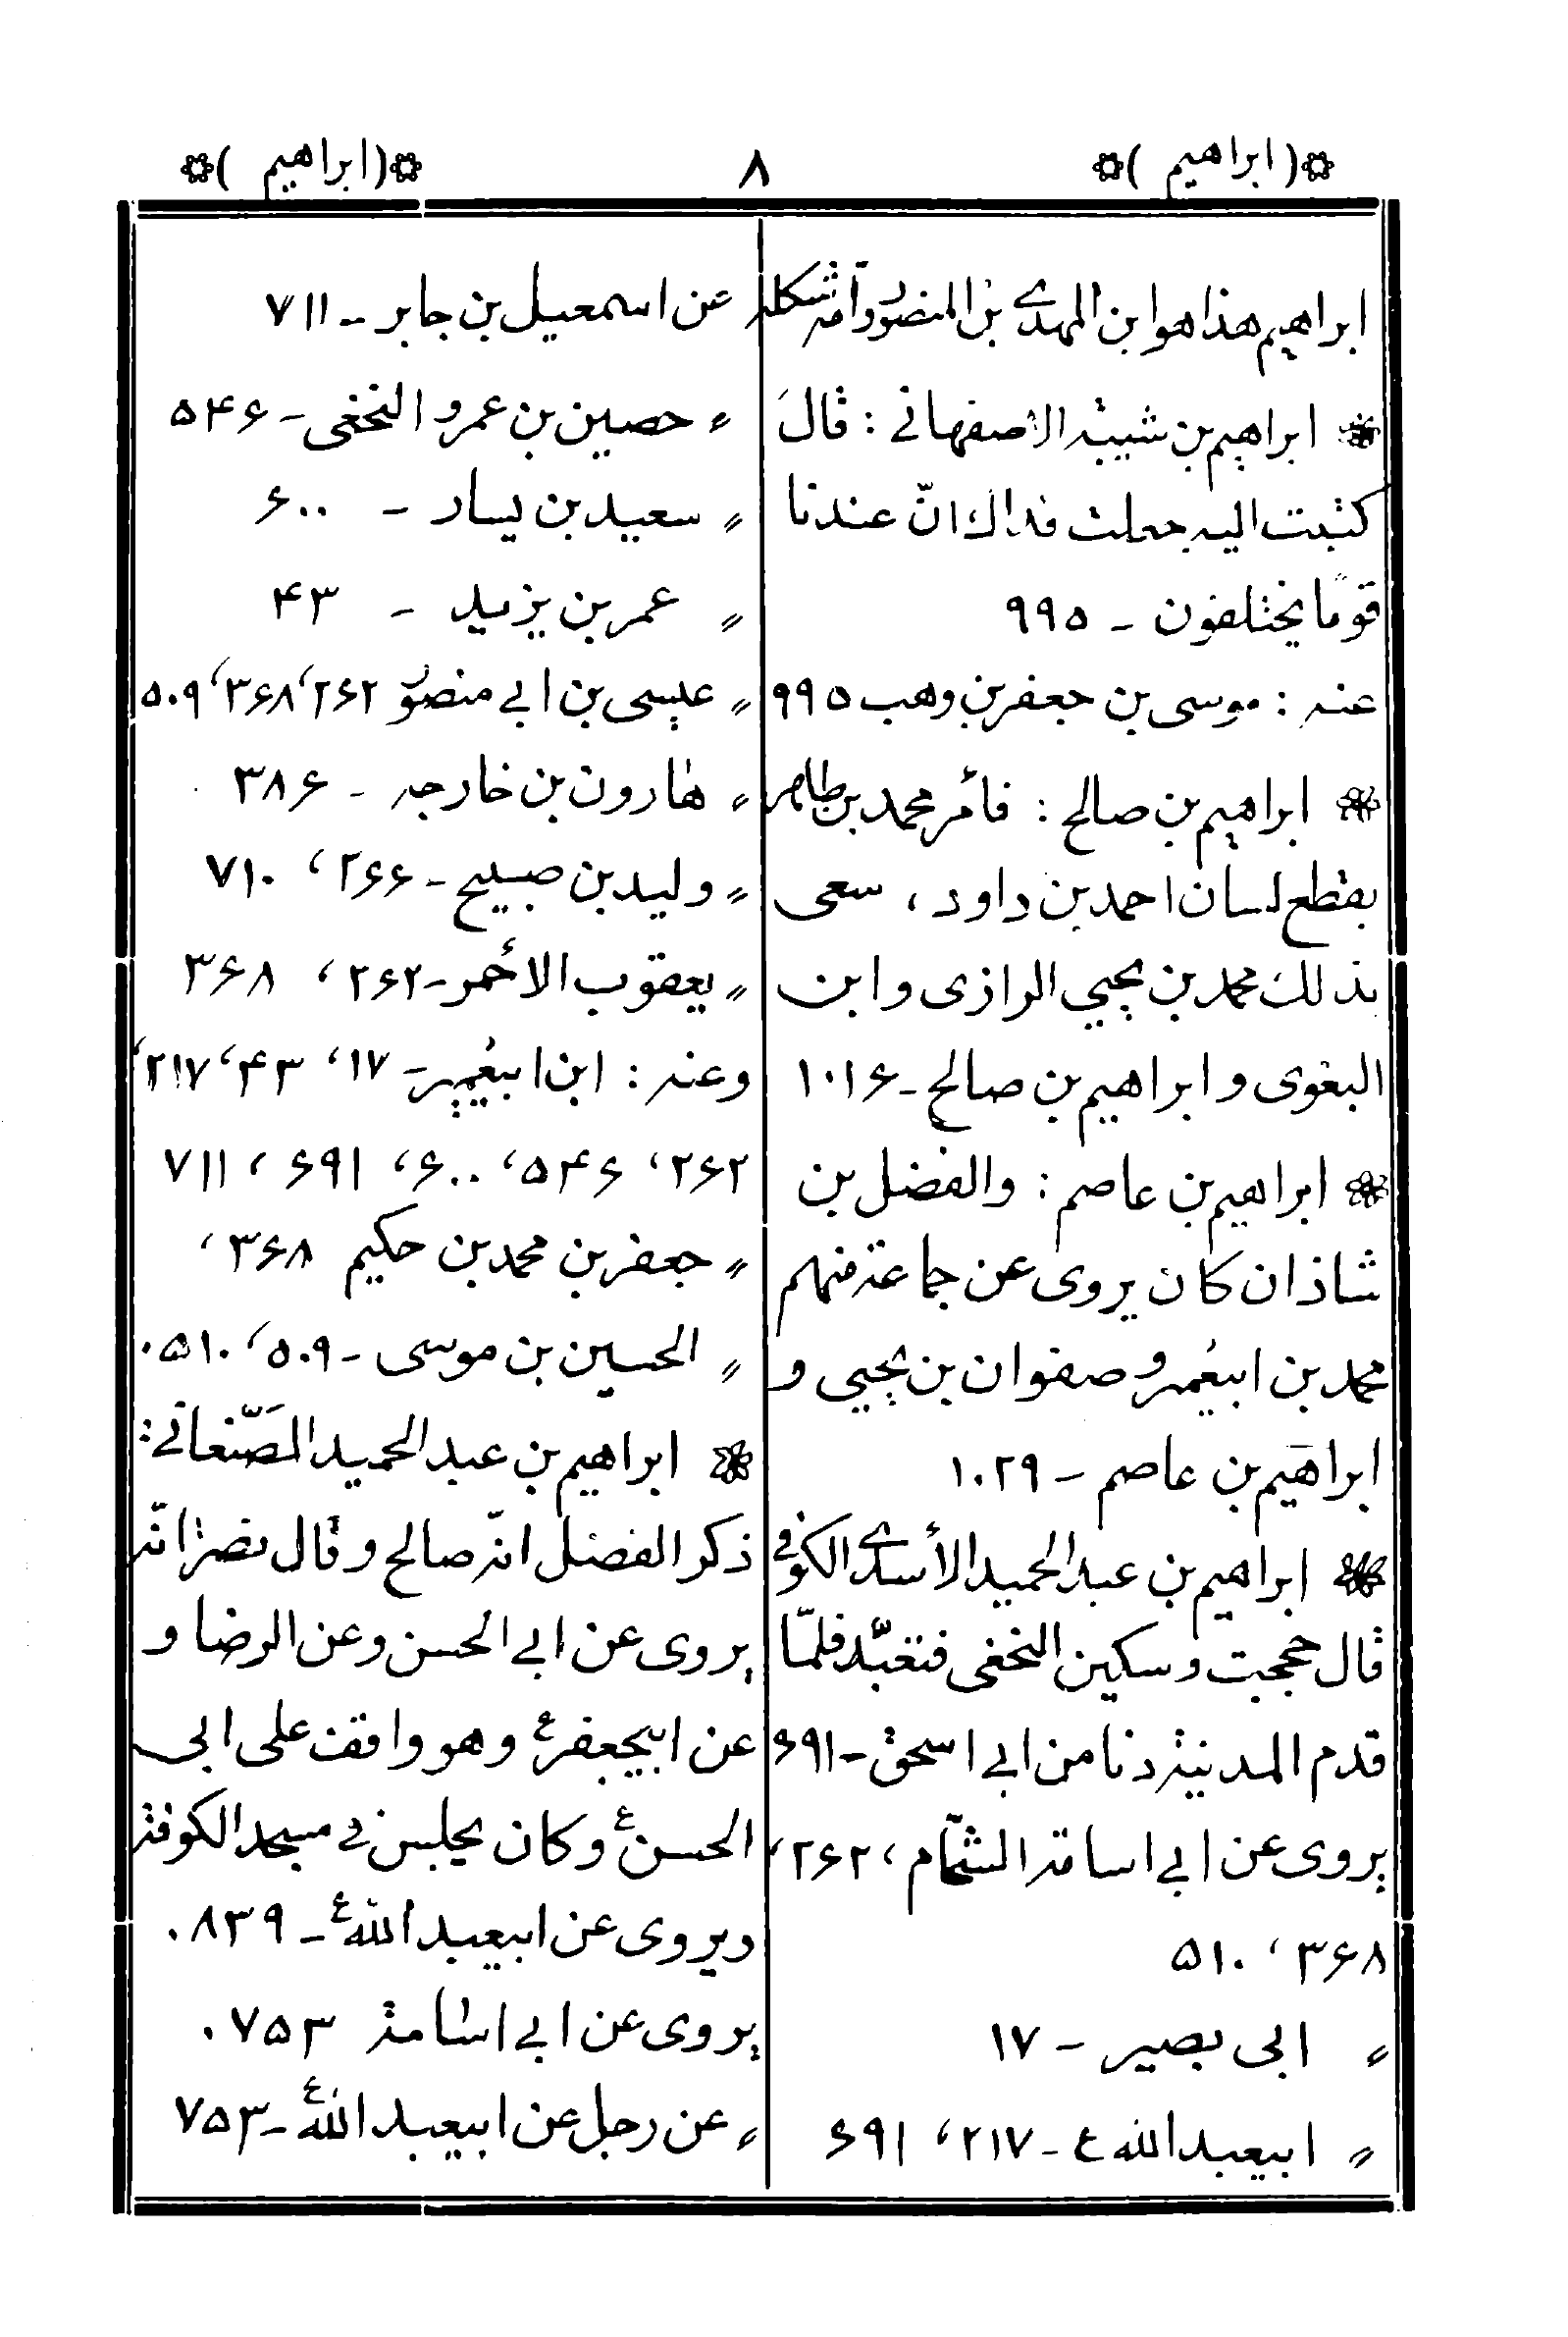 ❊( ابراهيم )❊ ٨ ❊( ابراهيم )❊
ابراهيم هذا هو ابن المهدي بن المنصور وامّه شكله
❊ ابراهيم بن شيبة الاصفهاني : قالَ
كتبت اليه جعلت فداك انّ عندنا
قومًا يختلفون - ۹۹۵
عنه : موسى بن جعفر بن وهب ۹۹۵
❊ ابراهيم بن صالح : فأمر محمد بن طاهر
بقطع لسان احمد بن داود ، سعى
بذلك محمد بن يحيي الرازى وابن
البغوى و ابراهيم بن صالح - ۱۰۱۶
❊ ابراهيم بن عاصم : والفضل بن
شاذان كان يروى عن جماعة منهم
محمد بن ابيعُمير و صفوان بن يحيي و
ابراهيم بن عاصم - ۱۰۲۹
❊ ابراهيم بن عبد الحميد الأسدي الكوفي
قال حججت وسكين النخعى فتعبّد فلمّا
قدم المدينة دنا من ابي اسحق - ۶۹۱
يروى عن ابي اسامة الشحّام ، ۲۶۲،
۳۶۸، ۵۱۰
〃 ابى بصير - ۱۷
〃 ابيعبدالله ع - ۲۱۷، ۶۹۱
عن اسمعيل بن جابر - ۷۱۱
〃 حصين بن عمرو النخعى - ۵۴۶
〃 سعيد بن يسار - ۶۰۰
〃 عمر بن يزيد - ۴۳
〃 عيسى بن ابي منصور ۲۶۲، ۳۶۸، ۵۰۹
〃 هارون بن خارجه - ۳۸۶
〃 وليد بن صبيح - ۲۶۶، ۷۱۰
〃 يعقوب الأحمر - ۲۶۲، ۳۶۸
وعنه : ابن ابيعُمير - ۱۷، ۴۳، ۲۱۷،
۲۶۲، ۵۴۶، ۶۰۰، ۶۹۱، ۷۱۱
〃 جعفر بن محمد بن حكيم ۳۶۸،
〃 الحسين بن موسى - ۵۰۹، ۵۱۰.
❊ ابراهيم بن عبد الحميد الصَّنعاني :
ذكر الفضل انّه صالح و قال نصر انّه
يروى عن ابي الحسن وعن الرضا و
عن ابيجعفر ع وهو واقف على ابى
الحسن ع وكان يجلس في مسجد الكوفة
ويروى عن ابيعبد الله ع - ۸۳۹.
يروى عن ابي اسامة ۷۵۳.
〃 عن رجل عن ابيعبد الله ع - ۷۵۳